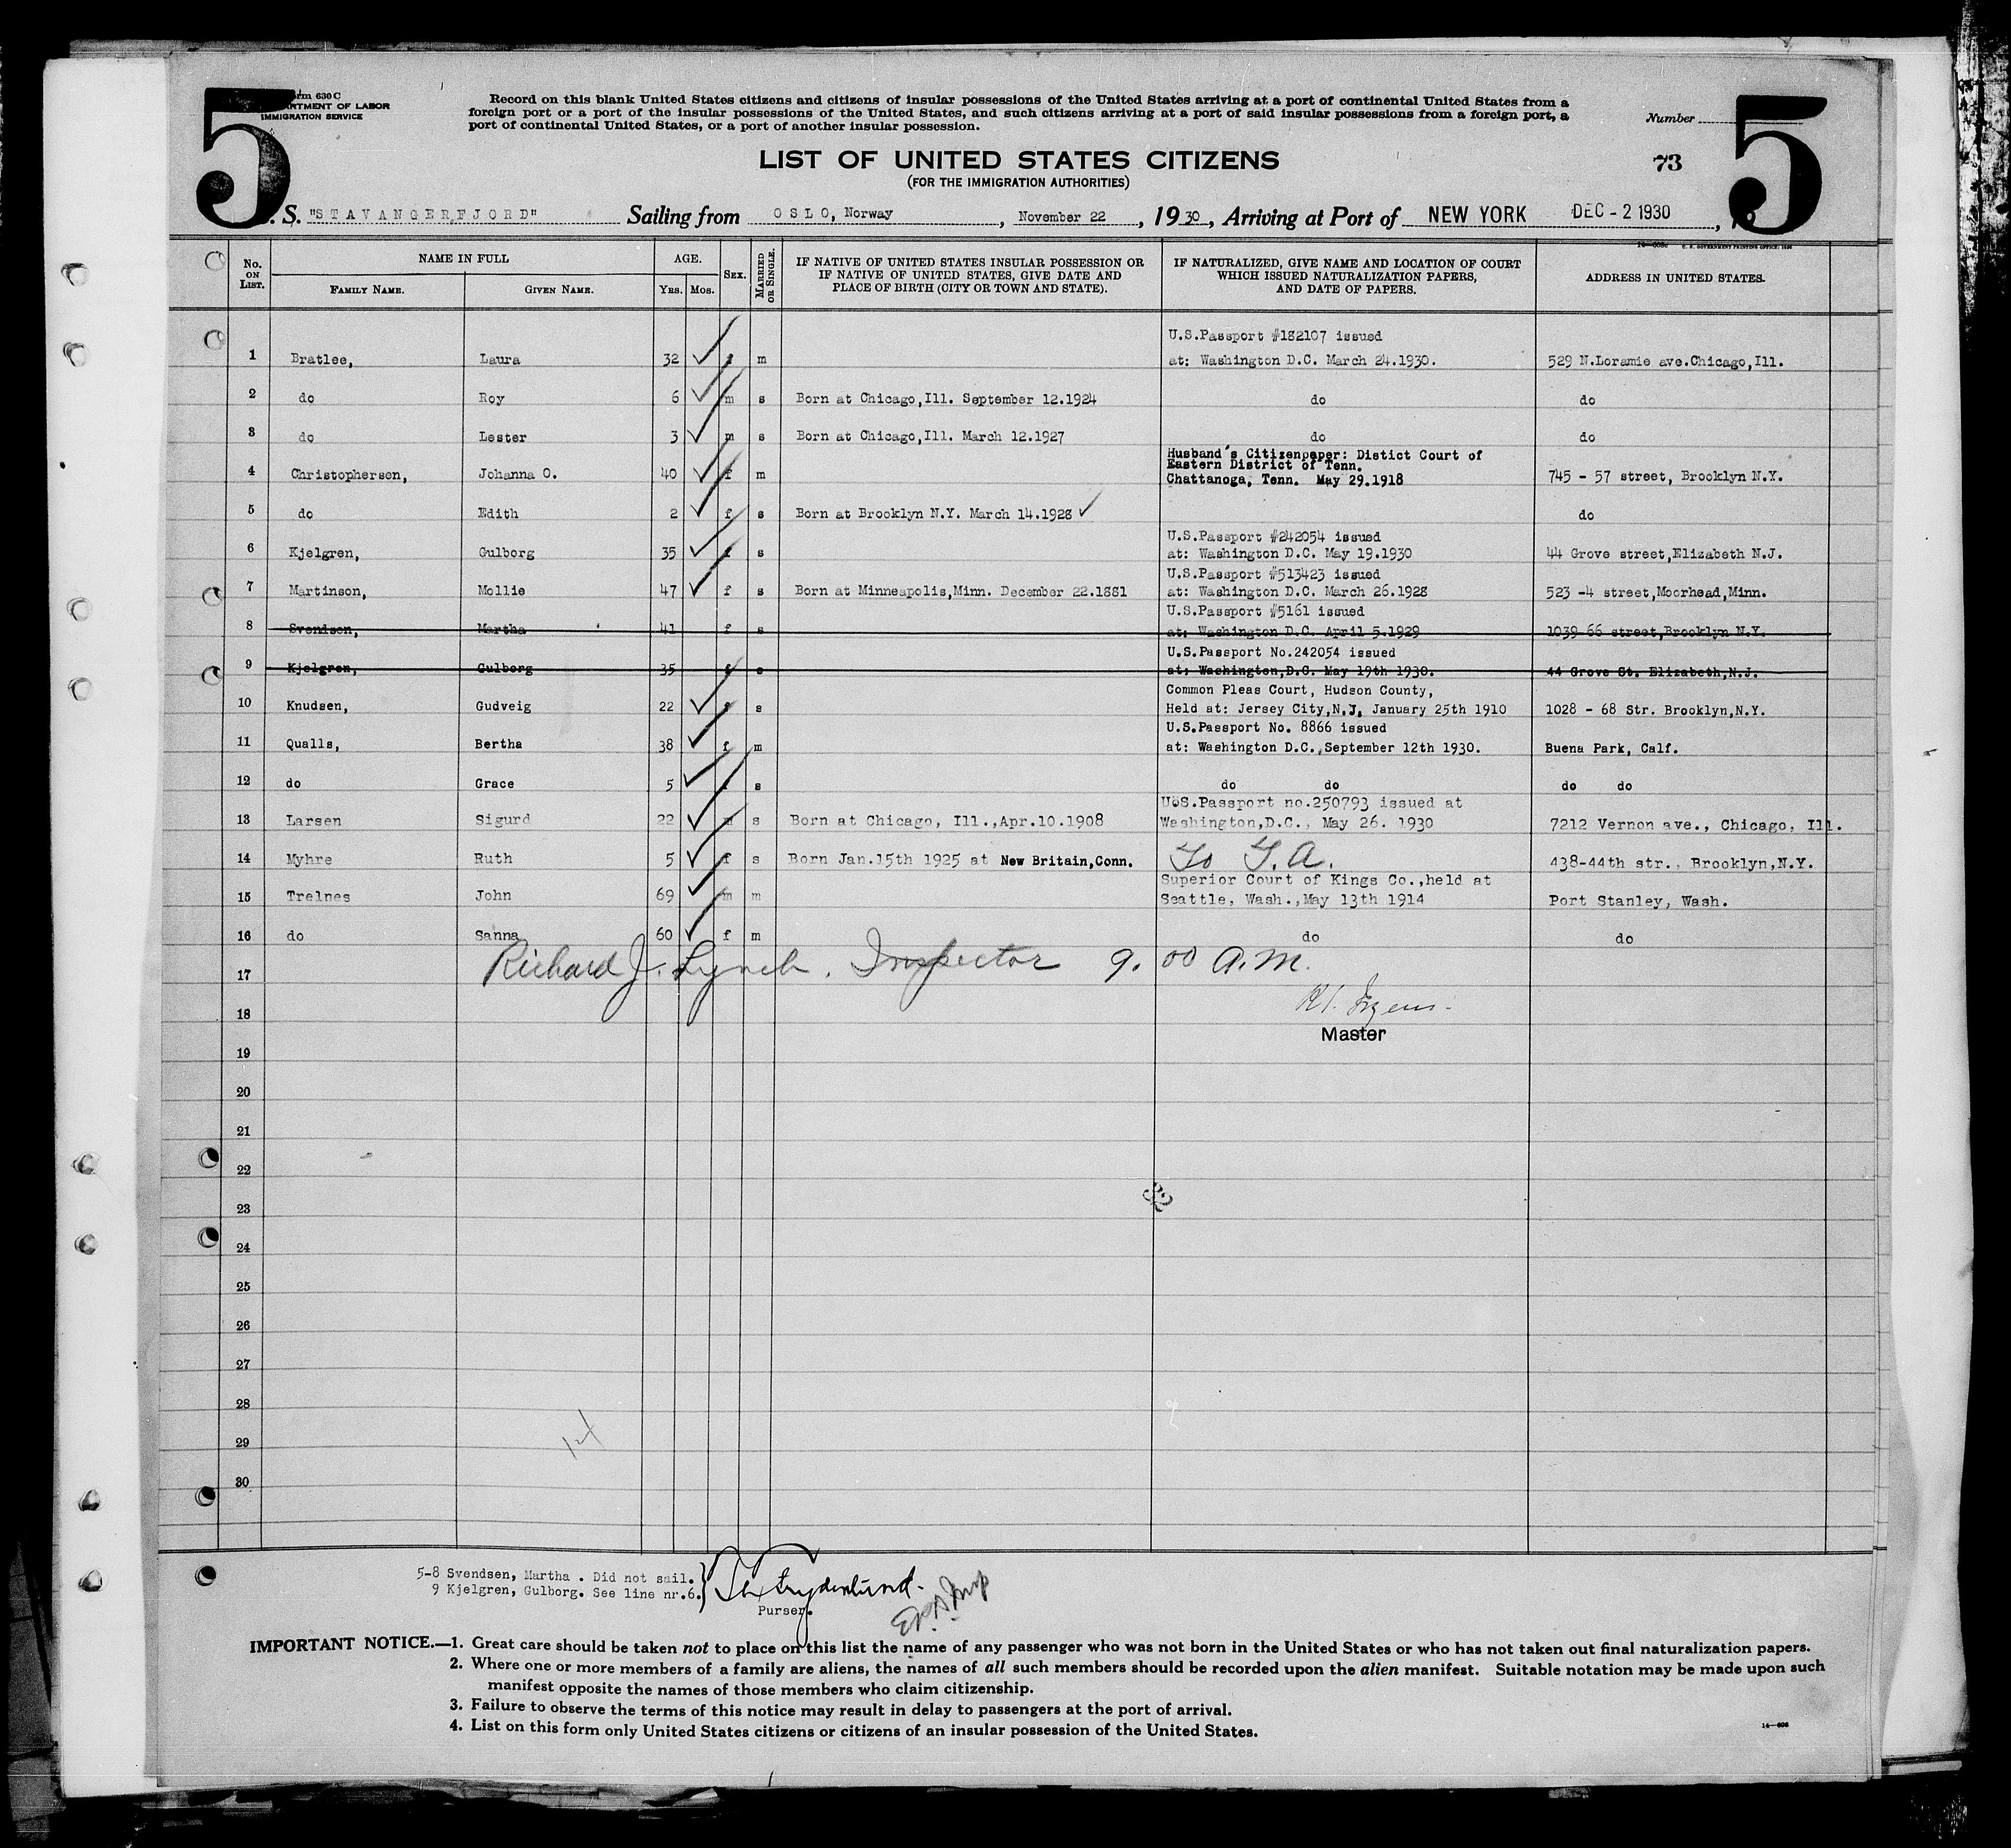 5
Form 630 C
DEPARTMENT OF LABOR
IMMIGRATION SERVICE
Record on this blank United States citizens and citizens of insular possessions of the United States arriving at a port of continental United States from a
foreign port or a port of the insular possessions of the United States, and such citizens arriving at a port of said insular possessions from a foreign port, a
port of continental United States, or a port of another insular possession.
Number
5
LIST OF UNITED STATES CITIZENS
73
(FOR THE IMMIGRATION AUTHORITIES)
S. S. "STAVANGERFJORD" Sailing from OSLO, Norway, November 22, 1930, Arriving at Port of NEW YORK DEC - 2 1930
No. ON LIST. NAME IN FULL FAMILY NAME. GIVEN NAME. AGE. YRS. MOS. SEX. MARRIED OR SINGLE. IF NATIVE OF UNITED STATES INSULAR POSSESSION OR IF NATIVE OF UNITED STATES, GIVE DATE AND PLACE OF BIRTH (CITY OR TOWN AND STATE). IF NATURALIZED, GIVE NAME AND LOCATION OF COURT WHICH ISSUED NATURALIZATION PAPERS, AND DATE OF PAPERS. ADDRESS IN UNITED STATES.
U.S.Passport #182107 issued
1 Bratlee, Laura 32 f m at: Washington D.C. March 24.1930. 529 N.Loramie ave.Chicago,Ill.
2 do Roy 6 m s Born at Chicago,Ill. September 12.1924 do do
3 do Lester 3 m s Born at Chicago,Ill. March 12.1927 do do
Husband's Citizenpaper: Distict Court of
Eastern District of Tenn.
4 Christophersen, Johanna O. 40 f m Chattanoga, Tenn. May 29.1918 745 - 57 street, Brooklyn N.Y.
5 do Edith 2 f s Born at Brooklyn N.Y. March 14.1928 do
U.S.Passport #242054 issued
6 Kjelgren, Gulborg 35 f s at: Washington D.C. May 19.1930 44 Grove street,Elizabeth N.J.
U.S.Passport #513423 issued
7 Martinson, Mollie 47 f s Born at Minneapolis,Minn. December 22.1881 at: Washington D.C. March 26.1928 523 -4 street,Moorhead,Minn.
U.S.Passport #5161 issued
8 Svendsen, Martha 41 f s at: Washington D.C. April 5.1929 1039 66 street,Brooklyn N.Y.
U.S.Passport No.242054 issued
9 Kjelgren, Gulborg 35 f s at: Washington,D.C. May 19th 1930. 44 Grove St. Elizabeth,N.J.
Common Pleas Court, Hudson County,
10 Knudsen, Gudveig 22 f s Held at: Jersey City,N.J. January 25th 1910 1028 - 68 Str. Brooklyn,N.Y.
U.S.Passport No. 8866 issued
11 Qualls, Bertha 38 f m at: Washington D.C.,September 12th 1930. Buena Park, Calf.
12 do Grace 5 f s do do do do
U.S.Passport no.250793 issued at
13 Larsen Sigurd 22 m s Born at Chicago, Ill.,Apr.10.1908 Washington,D.C., May 26. 1930 7212 Vernon ave., Chicago, Ill.
14 Myhre Ruth 5 f s Born Jan.15th 1925 at New Britain,Conn. To T.A. 438-44th str., Brooklyn,N.Y.
Superior Court of Kings Co.,held at
15 Trelnes John 69 m m Seattle, Wash.,May 13th 1914 Port Stanley, Wash.
16 do Sanna 60 f m do do
17 Richard J. Lynch. Inspector 9.00 A.M.
18
Master
19
20
21
22
23
24
25
26
27
28
29
30
5-8 Svendsen, Martha . Did not sail.
9 Kjelgren, Gulborg. See line nr.6.
Purser.
IMPORTANT NOTICE.—1. Great care should be taken not to place on this list the name of any passenger who was not born in the United States or who has not taken out final naturalization papers.
2. Where one or more members of a family are aliens, the names of all such members should be recorded upon the alien manifest. Suitable notation may be made upon such
manifest opposite the names of those members who claim citizenship.
3. Failure to observe the terms of this notice may result in delay to passengers at the port of arrival.
4. List on this form only United States citizens or citizens of an insular possession of the United States.